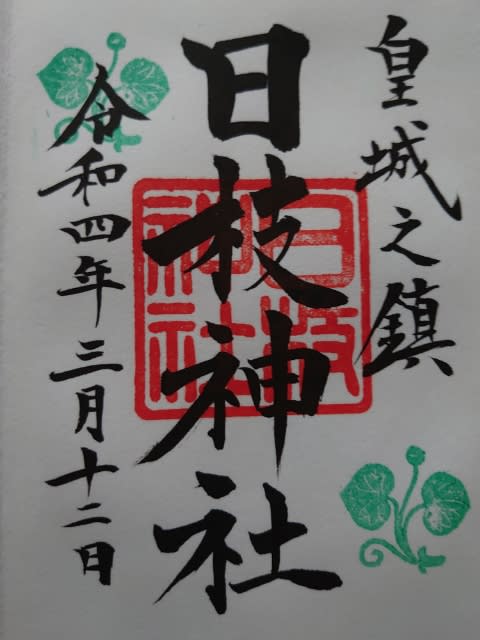 皇城之鎮
日枝神社
日枝神社
令和四年三月十二日